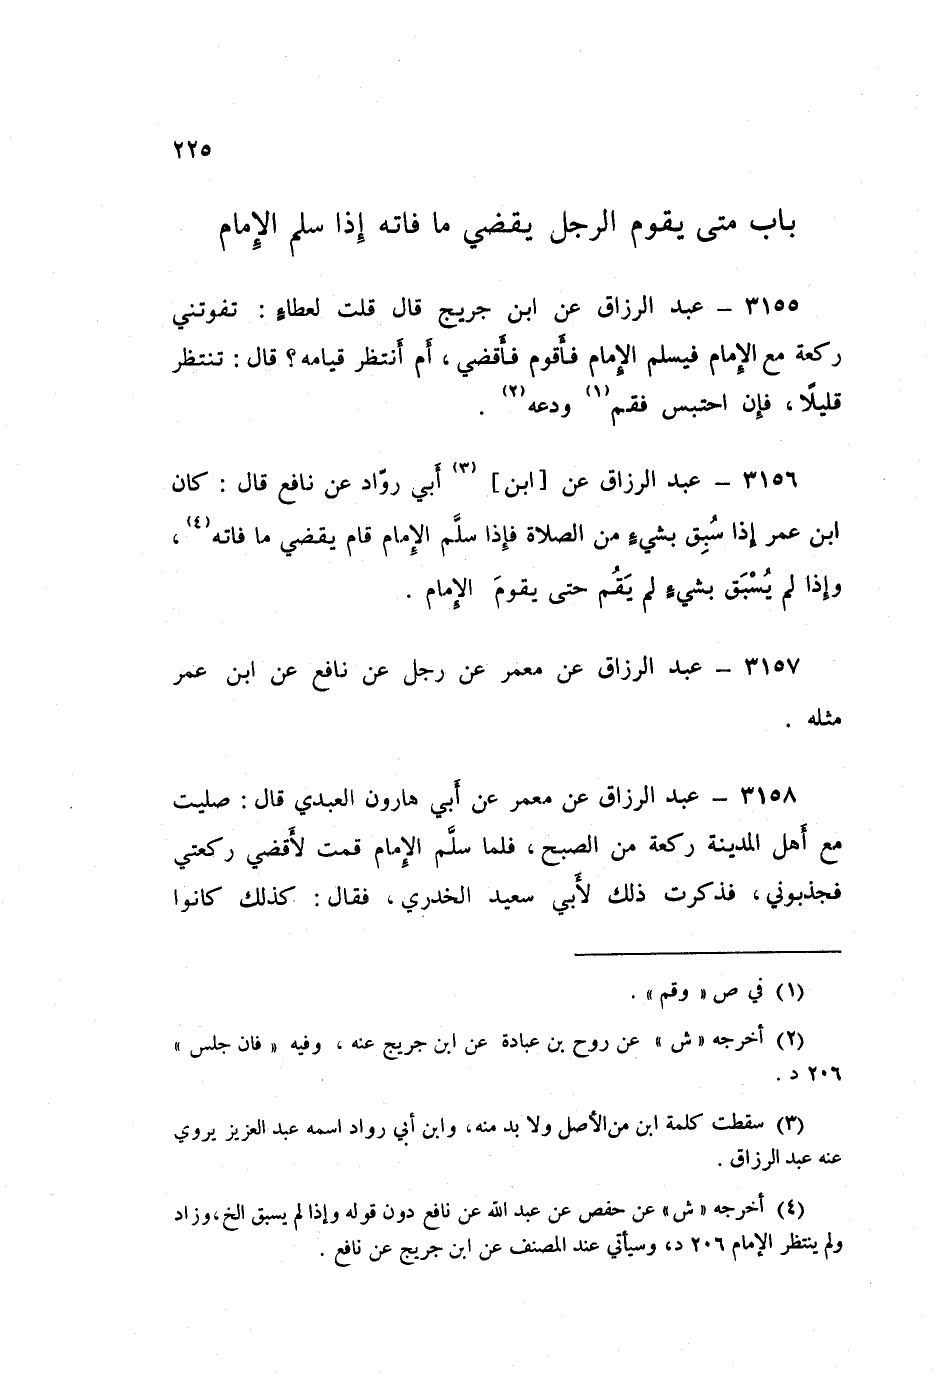 ٢٢٥
باب متى يقوم الرجل يقضي ما فاته إذا سلم الإمام
٣١٥٥ – عبد الرزاق عن ابن جريج قال قلت لعطاءٍ : تفوتني
ركعة مع الإمام فيسلم الإمام فأقوم فأقضي ، أم أنتظر قيامه ؟ قال : تنتظر
قليلًا ، فإن احتبس فقم (١) ودعه (٢) .
٣١٥٦ – عبد الرزاق عن [ابن] (٣) أبي روّاد عن نافع قال : كان
ابن عمر إذا سُبِق بشيءٍ من الصلاة فإذا سلَّم الإمام قام يقضي ما فاته (٤) ،
وإذا لم يُسْبَق بشيءٍ لم يَقُم حتى يقومَ الإمام .
٣١٥٧ – عبد الرزاق عن معمر عن رجل عن نافع عن ابن عمر
مثله .
٣١٥٨ – عبد الرزاق عن معمر عن أبي هارون العبدي قال : صليت
مع أهل المدينة ركعة من الصبح ، فلما سلَّم الإمام قمت لأقضي ركعتي
فجذبوني ، فذكرت ذلك لأبي سعيد الخدري ، فقال : كذلك كانوا
(١) في ص « وقم » .
(٢) أخرجه « ش » عن روح بن عبادة عن ابن جريج عنه ، وفيه « فان جلس »
٢٠٦ د .
(٣) سقطت كلمة ابن من الأصل ولا بد منه ، وابن أبي رواد اسمه عبد العزيز يروي
عنه عبد الرزاق .
(٤) أخرجه « ش » عن حفص عن عبد الله عن نافع دون قوله وإذا لم يسبق الخ ، وزاد
ولم ينتظر الإمام ٢٠٦ د ، وسيأتي عند المصنف عن ابن جريج عن نافع .